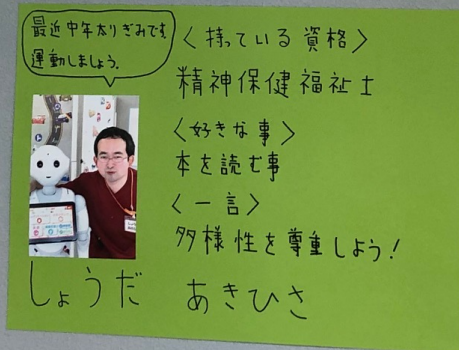 最近中年太りぎみです。
運動しましょう。
〈持っている資格〉
精神保健福祉士
〈好きな事〉
本を読む事
〈一言〉
多様性を尊重しよう!
しょうだ あきひさ